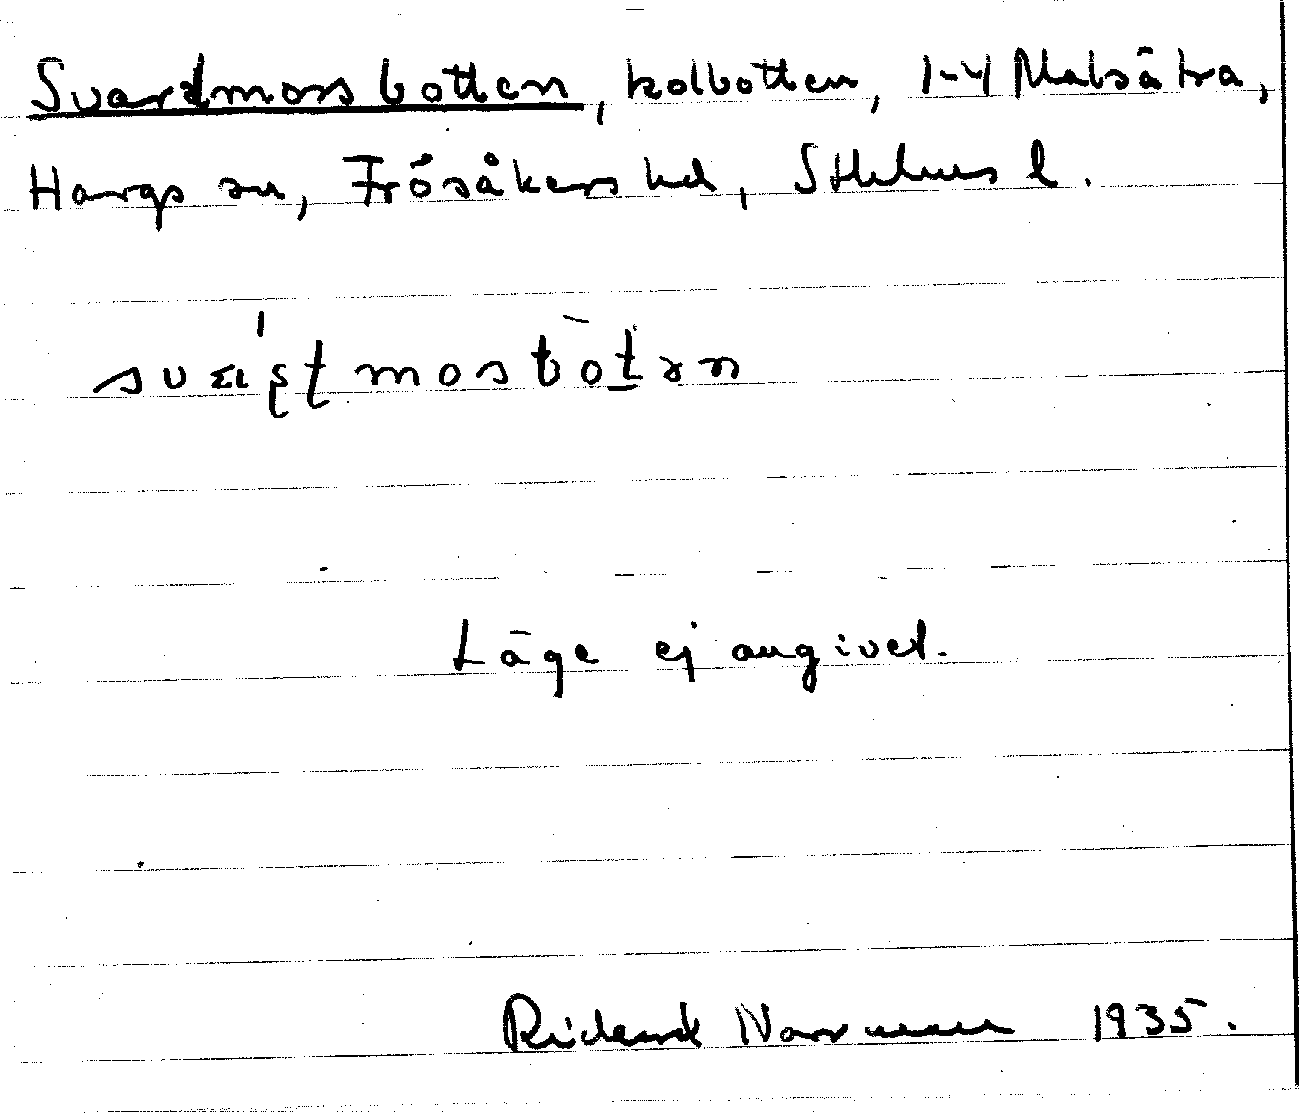 Svartmossbotten, kolbotten, 1-4 Malsätra,
Hargs sn, Frösåkers hd, Sthlms l.
Läge ej angivet.
Rickard Norrman 1935.